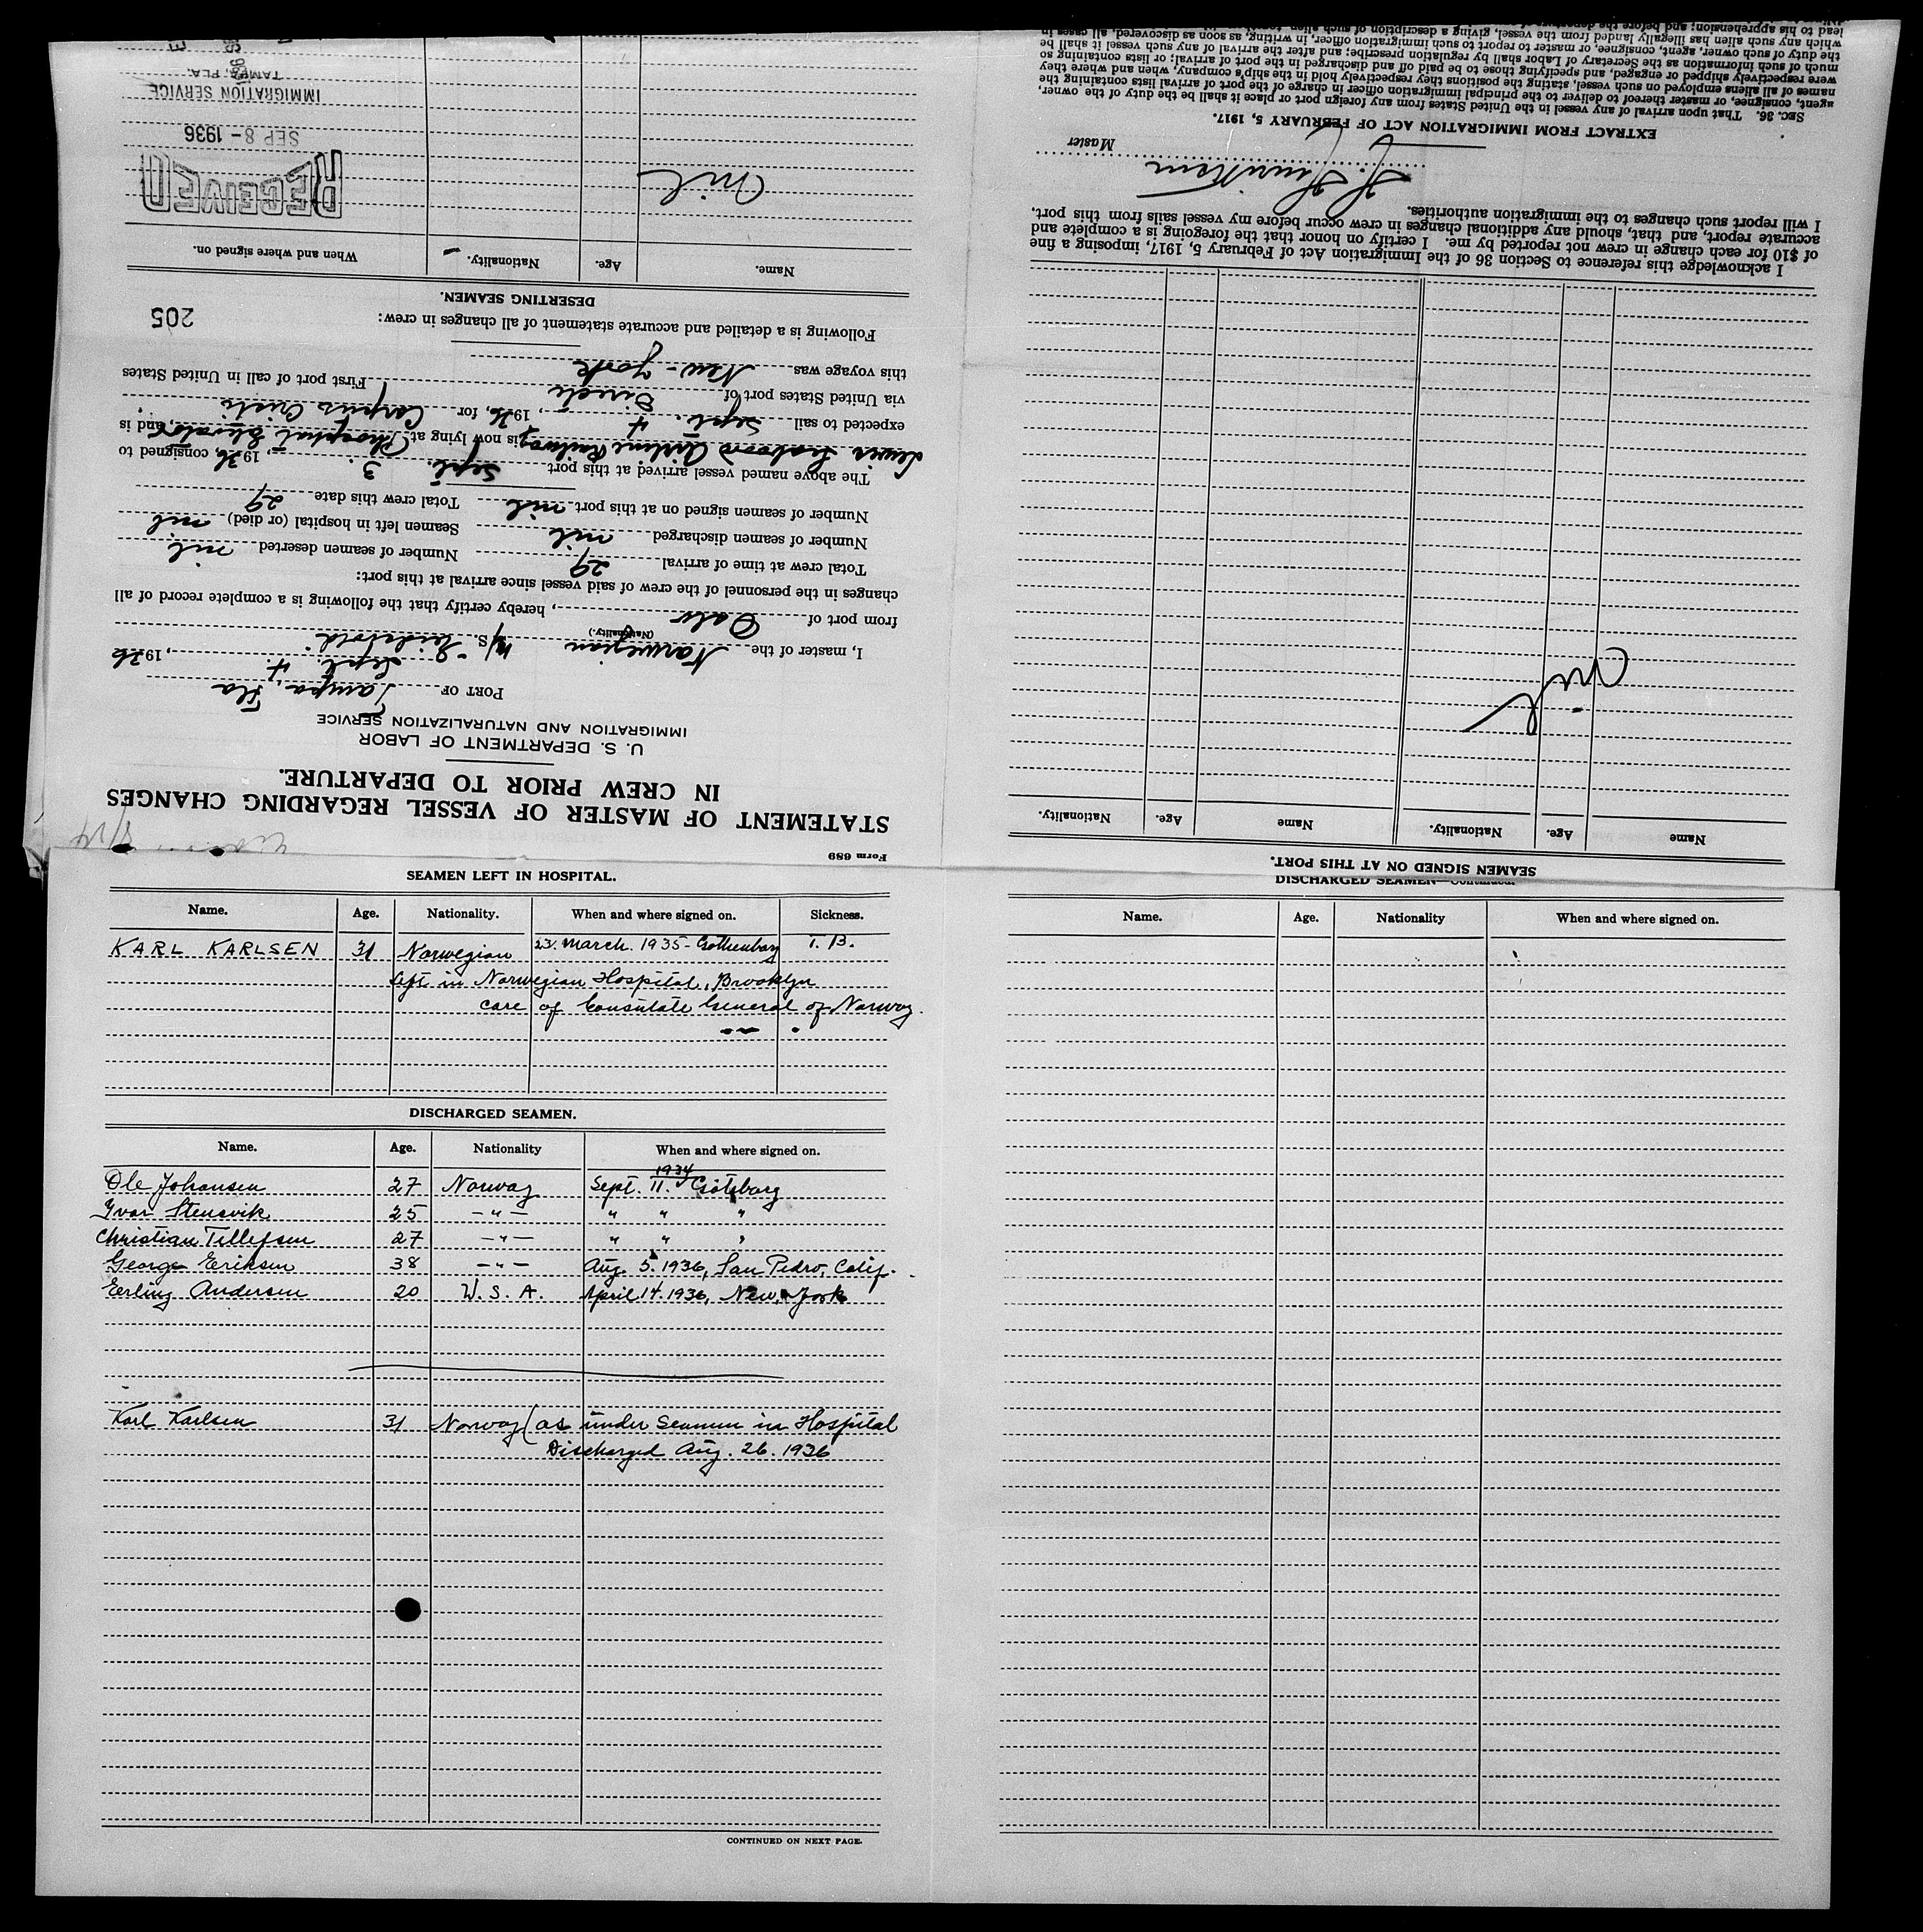 Form 689
STATEMENT OF MASTER OF VESSEL REGARDING CHANGES
IN CREW PRIOR TO DEPARTURE.
U. S. DEPARTMENT OF LABOR
IMMIGRATION AND NATURALIZATION SERVICE
PORT OF Tampa, Fla
Sept. 4, 1936
I, master of the Norwegian M/S.
(Nationality.)
from port of Oslo, hereby certify that the following is a complete record of all
changes in the personnel of the crew of said vessel since arrival at this port:
Total crew at time of arrival 29 Number of seamen deserted nil
Number of seamen discharged nil Seamen left in hospital (or died) nil
Number of seamen signed on at this port nil Total crew this date 29
The above named vessel arrived at this port Sept. 3., 1936, consigned to
Seaboard Airline Railway is now lying at Phosphat Elevator, and is
expected to sail Sept. 4, 1936, for Corpus Cristi,
via United States port of Direct First port of call in United States
this voyage was New-York
Following is a detailed and accurate statement of all changes in crew:
205
DESERTING SEAMEN.
Name. Age. Nationality. When and where signed on.
nil
RECEIVED
SEP 8 - 1936
IMMIGRATION SERVICE
TAMPA, FLA.
SEAMEN SIGNED ON AT THIS PORT.
Name Age. Nationality. Name Age. Nationality.
Nil
I acknowledge this reference to Section 36 of the Immigration Act of February 5, 1917, imposing a fine
of $10 for each change in crew not reported by me. I certify on honor that the foregoing is a complete and
accurate report, and that, should any additional changes in crew occur before my vessel sails from this port,
I will report such changes to the immigration authorities.
Master
EXTRACT FROM IMMIGRATION ACT OF FEBRUARY 5, 1917.
SEC. 36. That upon arrival of any vessel in the United States from any foreign port or place it shall be the duty of the owner,
agent, consignee, or master thereof to deliver to the principal immigration officer in charge of the port of arrival lists containing the
names of all aliens employed on such vessel, stating the positions they respectively hold in the ship's company, when and where they
were respectively shipped or engaged, and specifying those to be paid off and discharged in the port of arrival; or lists containing so
much of such information as the Secretary of Labor shall by regulation prescribe; and after the arrival of any such vessel it shall be
the duty of such owner, agent, consignee, or master to report to such immigration officer, in writing, as soon as discovered, all cases in
which any such alien has illegally landed from the vessel, giving a description of such alien,
lead to his apprehension; and before the departure of
SEAMEN LEFT IN HOSPITAL.
Name. Age. Nationality. When and where signed on. Sickness.
KARL KARLSEN 31 Norwegian 23. March. 1935 - Gothenburg T. B.
Left in Norwegian Hospital, Brooklyn
care of Consulate General of Norway.
DISCHARGED SEAMEN.
Name. Age. Nationality When and where signed on.
Ole Johansen 27 Norway Sept. 11. 1934 Götebarg
Yvar Stensvik 25 -"- " " "
Christian Tellefsen 27 -"- " " "
George Eriksen 38 -"- Aug. 5. 1936, San Pedro, Calif.
Eerling Andersen 20 U. S. A. April 14. 1936, New-York
Karl Karlsen 31 Norway (as under Seamen in Hospital
Discharged Aug. 26. 1936
CONTINUED ON NEXT PAGE.
DISCHARGED SEAMEN—Continued.
Name. Age. Nationality When and where signed on.